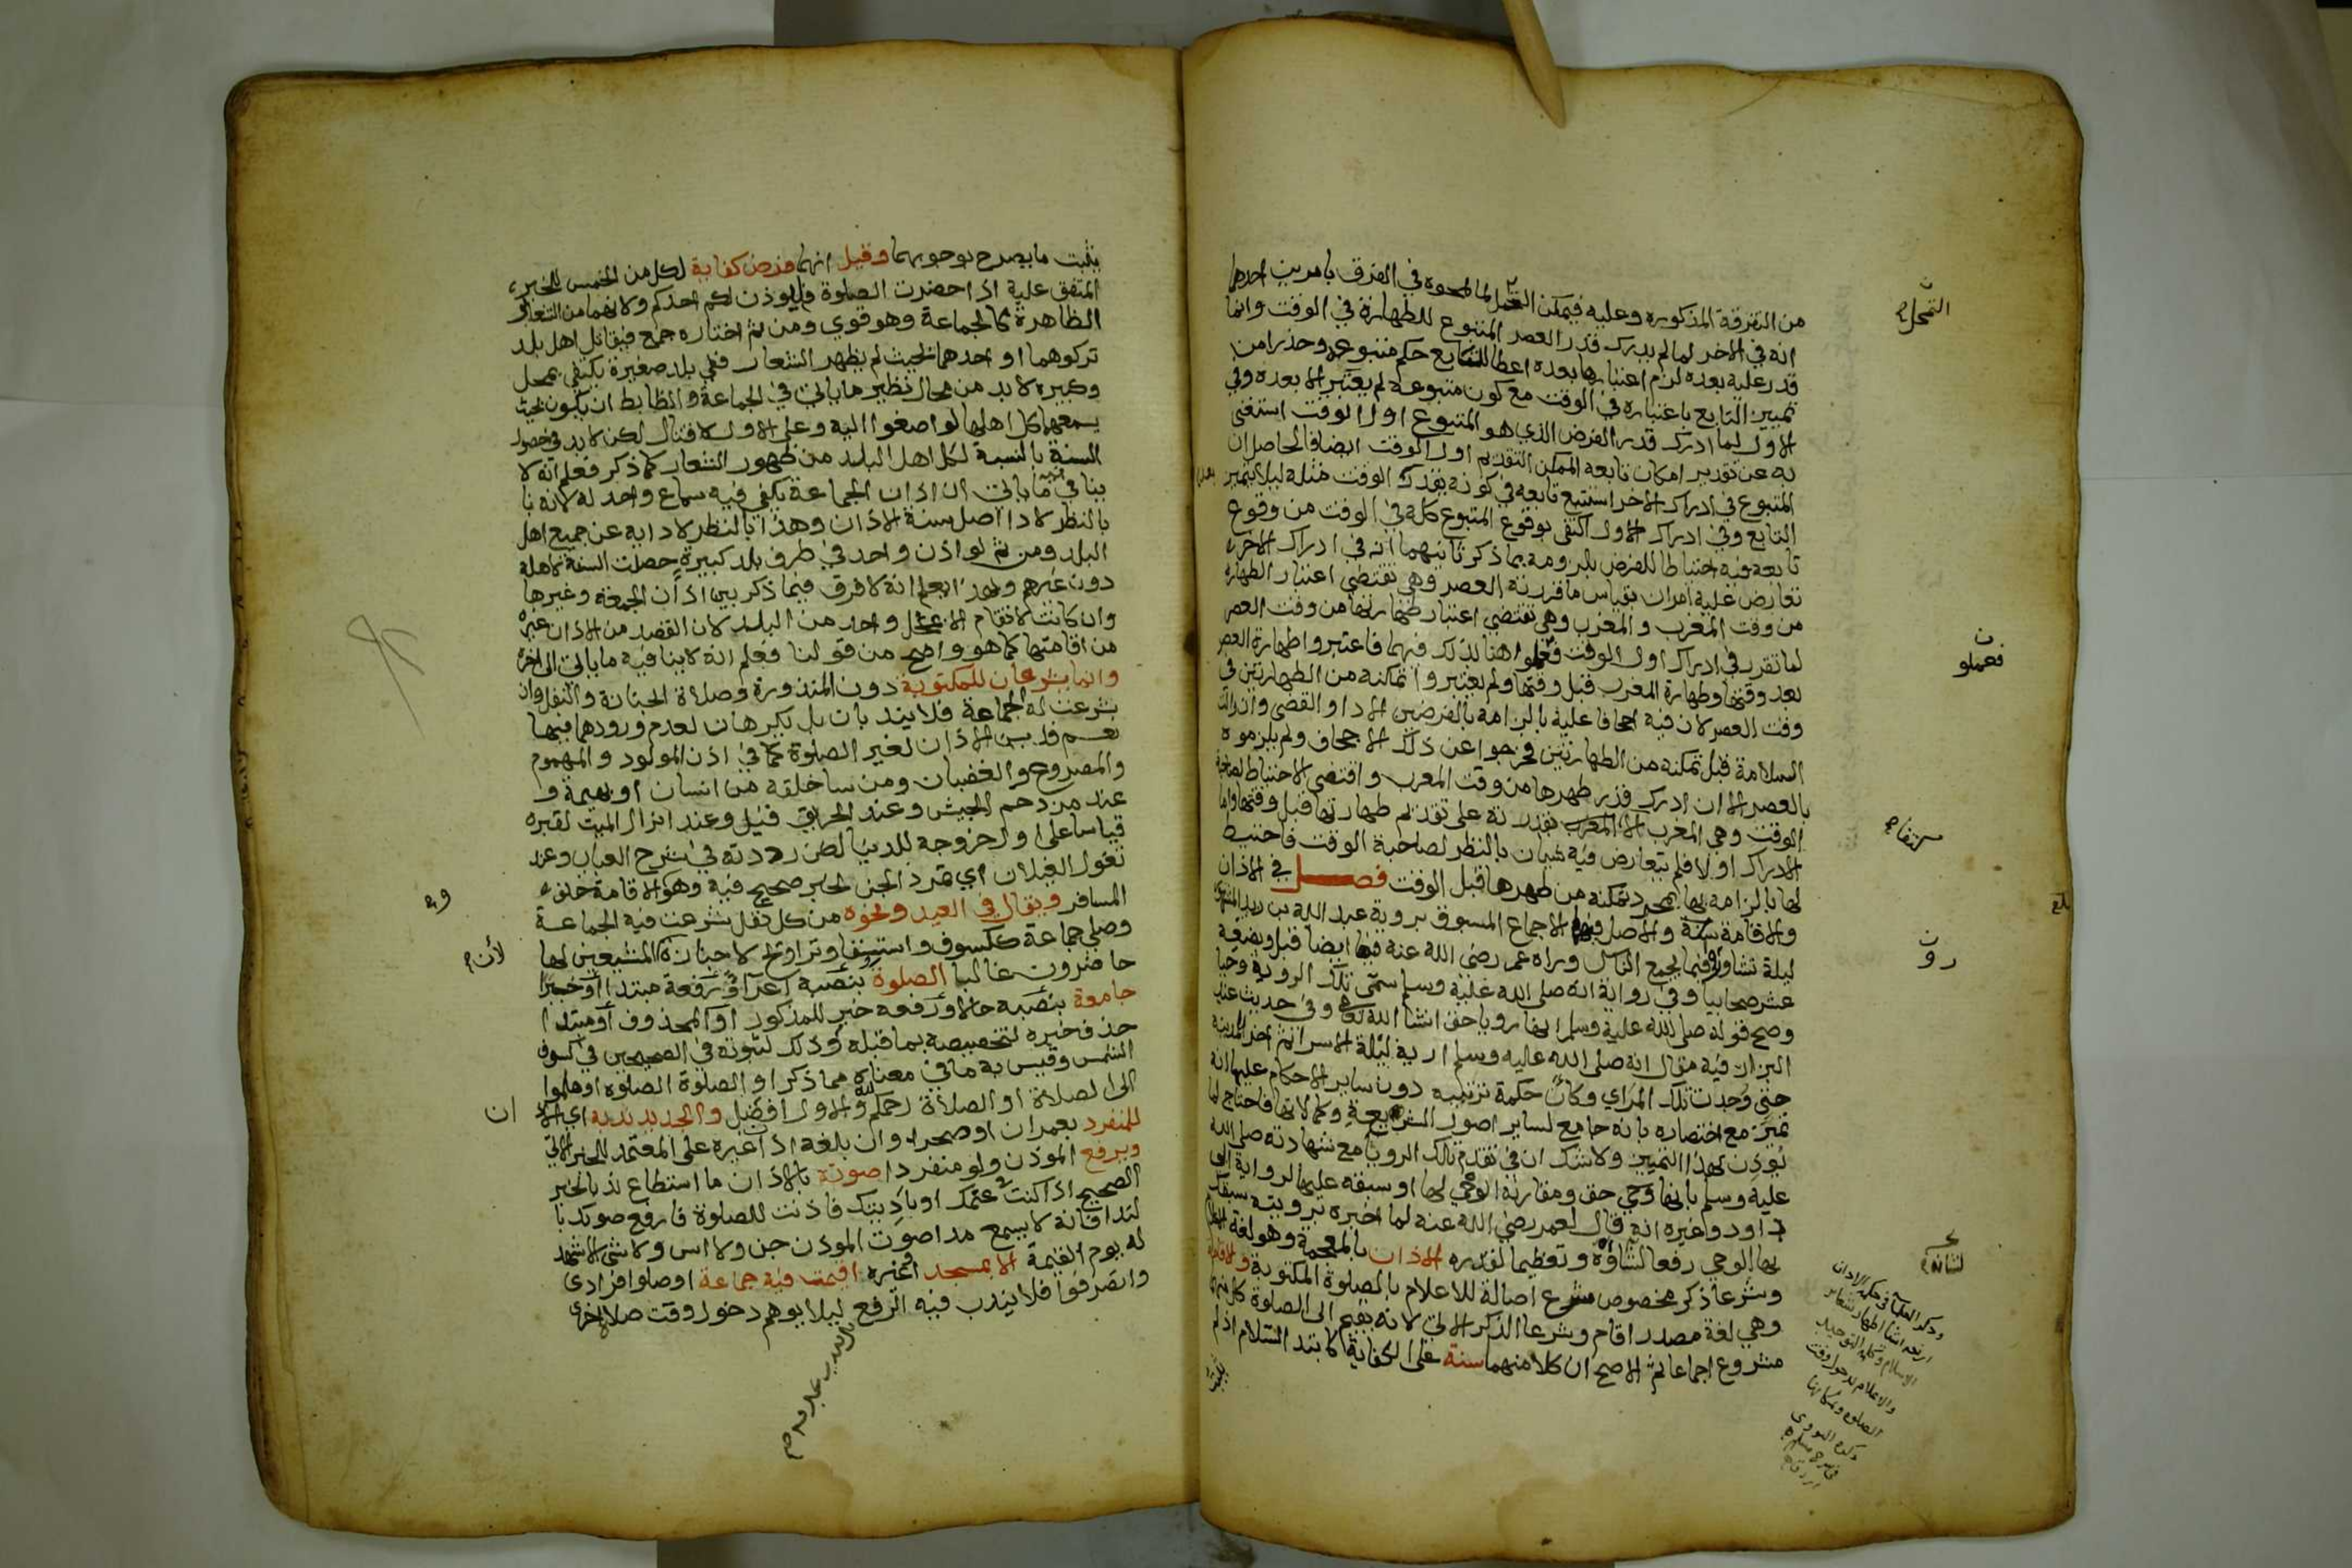 من التفرقة المذكورة وعليه فيمكن التحمل لما لمحوه في الفرق بامرين احدهما
انه في الاخر لما لم يدرك قدر العصر المتبوع للطهارة في الوقت وانما
قدر عليه بعده لزم اعتبارها بعده اعطا للتابع حكم متبوعه وحذرا من
تمييز التابع باعتباره في الوقت مع كون متبوعه لم يعتبر الا بعده وفي
الاول لما ادرك قدر الفرض الذي هو المتبوع اول الوقت استغنى
به عن تقدير امكان تابعه الممكن التقديم اول الوقت ايضا فالحاصل ان
المتبوع في ادراك الاخر استتبع تابعه في كونه بعد الوقت مثله ليلا يتميز
التابع وفي ادراك الاول اكتفى بوقوع المتبوع كله في الوقت من وقوع
تابعه فيه احتياطا للفرض بلزومه بما ذكر ثانيهما انه في ادراك الاخر
تعارض عليه امران بقياس ما قررته العصر وهي تقتضي اعتبار الطهارة
من وقت المغرب والمغرب وهي تقتضي اعتبار طهارتها من وقت العصر
لما تقرر في ادراك اول الوقت فعملوا هنا بذلك فيهما فاعتبروا طهارة العصر
بعد وقتها وطهارة المغرب قبل وقتها ولم يعتبروا تمكنه من الطهارتين في
وقت العصر لان فيه اجحافا عليه بالزامه بالفرضين الادا والقضى وان زالت
السلامة قبل تمكنه من الطهارتين فخرجوا عن ذلك الاجحاف ولم يلزموه
بالعصر الا ان ادرك قدر طهرها من وقت المغرب واقتضى الاحتياط لصاحبة
الوقت وهي المغرب قدرته على تقديم طهارتها قبل وقتها واما
الادراك اولا فلم يتعارض فيه شيان بالنظر لصاحبة الوقت فاحتيط
لها بالزامه بها بمجرد تمكنه من طهرها قبل الوقت فصل في الاذان
والاقامة والاصل فيهما الاجماع المسبوق بروية عبد الله بن زيد المشهورة
ليلة تشاوروا فيما يجمع الناس وراه عمر رضي الله عنه فيها ايضا قيل وبضعة
عشر صحابيا وفي رواية انه صلى الله عليه وسلم سمى تلك الروية وحيا
وصح قوله صلى الله عليه وسلم انها رويا حق انشا الله تعالى وفي حديث عند
البزار فيه مقال انه صلى الله عليه وسلم اريه ليلة الاسرا ثم اخر للمدينة
حتى وجدت تلك المراي وكأن حكمة ترتيبه دون ساير الاحكام عليها انه
تميز مع اختصاره بانه جامع لساير اصول الشريعة وكمالاتها فاحتاج لما
يوذن بهذا التمييز ولا شك ان في تقدم تلك الرويا مع شهادته صلى الله
عليه وسلم بانها وحي حق ومقارنة الوحي لها او سبقه عليها لرواية ابي
داود وغيره انه قال لعمر رضي الله عنه لما اخبره برويته سبقك
بها الوحي رفعا لشانه وتعظيما لقدره الاذان بالمعجمة وهو لغة الاعلام
وشرعا ذكر مخصوص شرع اصالة للاعلام بالصلوة المكتوبة والاقامة
وهي لغة مصدر اقام وشرعا الذكر الاتي لانه يقيم الى الصلوة كل منهما
مشروع اجماعا ثم الاصح ان كلا منهما سنة على الكفاية كابتدا السلام اذ لم
يثبت
التحمل
فعملو
رو
لشانه
بلغ
وذكر العلما في حكمة الاذان
اربعة اشيا اظهار شعاير
الاسلام وكلمة التوحيد
والاعلام بدخول وقت
الصلوة وبمكانها
ذكره النووي
في شرح مسلم
يثبت ما يصرح بوجوبهما وقيل انهما فرض كفاية لكل من الخمس للخبر
المتفق عليه اذا حضرت الصلوة فليوذن لكم احدكم ولانهما من الشعائر
الظاهرة كالجماعة وهو قوي ومن ثم اختاره جمع فيقاتل اهل بلد
تركوهما او احدهما بحيث لم يظهر الشعار ففي بلد صغيرة يكفي بمحل
وكبيرة لا بد من محال نظير ما ياتي في الجماعة والضابط ان يكون بحيث
يسمعهما كل اهلها لو اصغوا اليه وعلى الاول لا قتال لكن لا بد في حصول
السنة بالنسبة لكل اهل البلد من ظهور الشعار كما ذكر فعلم انه لا
ينافي ما ياتي ان اذان الجماعة يكفي فيه سماع واحد له لانه با
بالنظر لادا اصل سنة الاذان وهذا بالنظر لادايه عن جميع اهل
البلد ومن ثم لو اذن واحد في طرف بلد كبيرة حصلت السنة لاهله
دون غيرهم وبهذا يعلم انه لا فرق فيما ذكر بين اذان الجمعة وغيرها
وان كانت لا تقام الا بمحل واحد من البلد لان القصد من الاذان غيره
من اقامتها كما هو واضح من قولنا فعلم انه لا ينافيه ما ياتي الى اخره
وانما يشرعان للمكتوبة دون المنذورة وصلاة الجنازة والنفل وان
شرعت له الجماعة فلا يندبان بل يكرهان لعدم ورودهما فيها
نعم قد يسن الاذان لغير الصلوة كما في اذن المولود والمهموم
والمصروع والغضبان ومن ساخلقه من انسان او بهيمة و
عند مزدحم الجيش وعند الحريق قيل وعند انزال الميت لقبره
قياسا على اول خروجه للدنيا لكن رددته في شرح العباب وعند
تغول الغيلان اي تمرد الجن لخبر صحيح فيه وهو والاقامة خلف
المسافر ويقال في العيد ونحوه من كل نفل شرعت فيه الجماعة
وصلي جماعة ككسوف واستسقا وتراويح لا جنازة لان المشيعين لها
حاضرون غالبا الصلوة بنصبه اغراء ورفعه مبتدا او خبرا
جامعة بنصبه حالا ورفعه خبر للمذكور او المحذوف او مبتدا
حذف خبره لتخصيصه بما قبله وذلك لثبوته في الصحيحين في كسوف
الشمس وقيس به ما في معناه مما ذكر او الصلوة الصلوة او هلموا
الى الصلاة او الصلاة رحمكم الله والاول افضل والجديد ندبه اي الاذان
للمنفرد بعمران او صحرا وان بلغه اذان غيره على المعتمد للخبر الاتي
ويرفع الموذن ولو منفردا صوته بالاذان ما استطاع ندبا لخبر
الصحيح اذا كنت في غنمك او باديتك فاذنت للصلوة فارفع صوتك با
لندا فانه لا يسمع مدا صوت الموذن جن ولا انس ولا شي الا شهد
له يوم القيمة الا بمسجد او غيره اقيمت فيه جماعة او صلوا فرادى
وانصرفوا فلا يندب فيه الرفع ليلا يوهم دخول وقت صلاة اخرى
لأن
ان